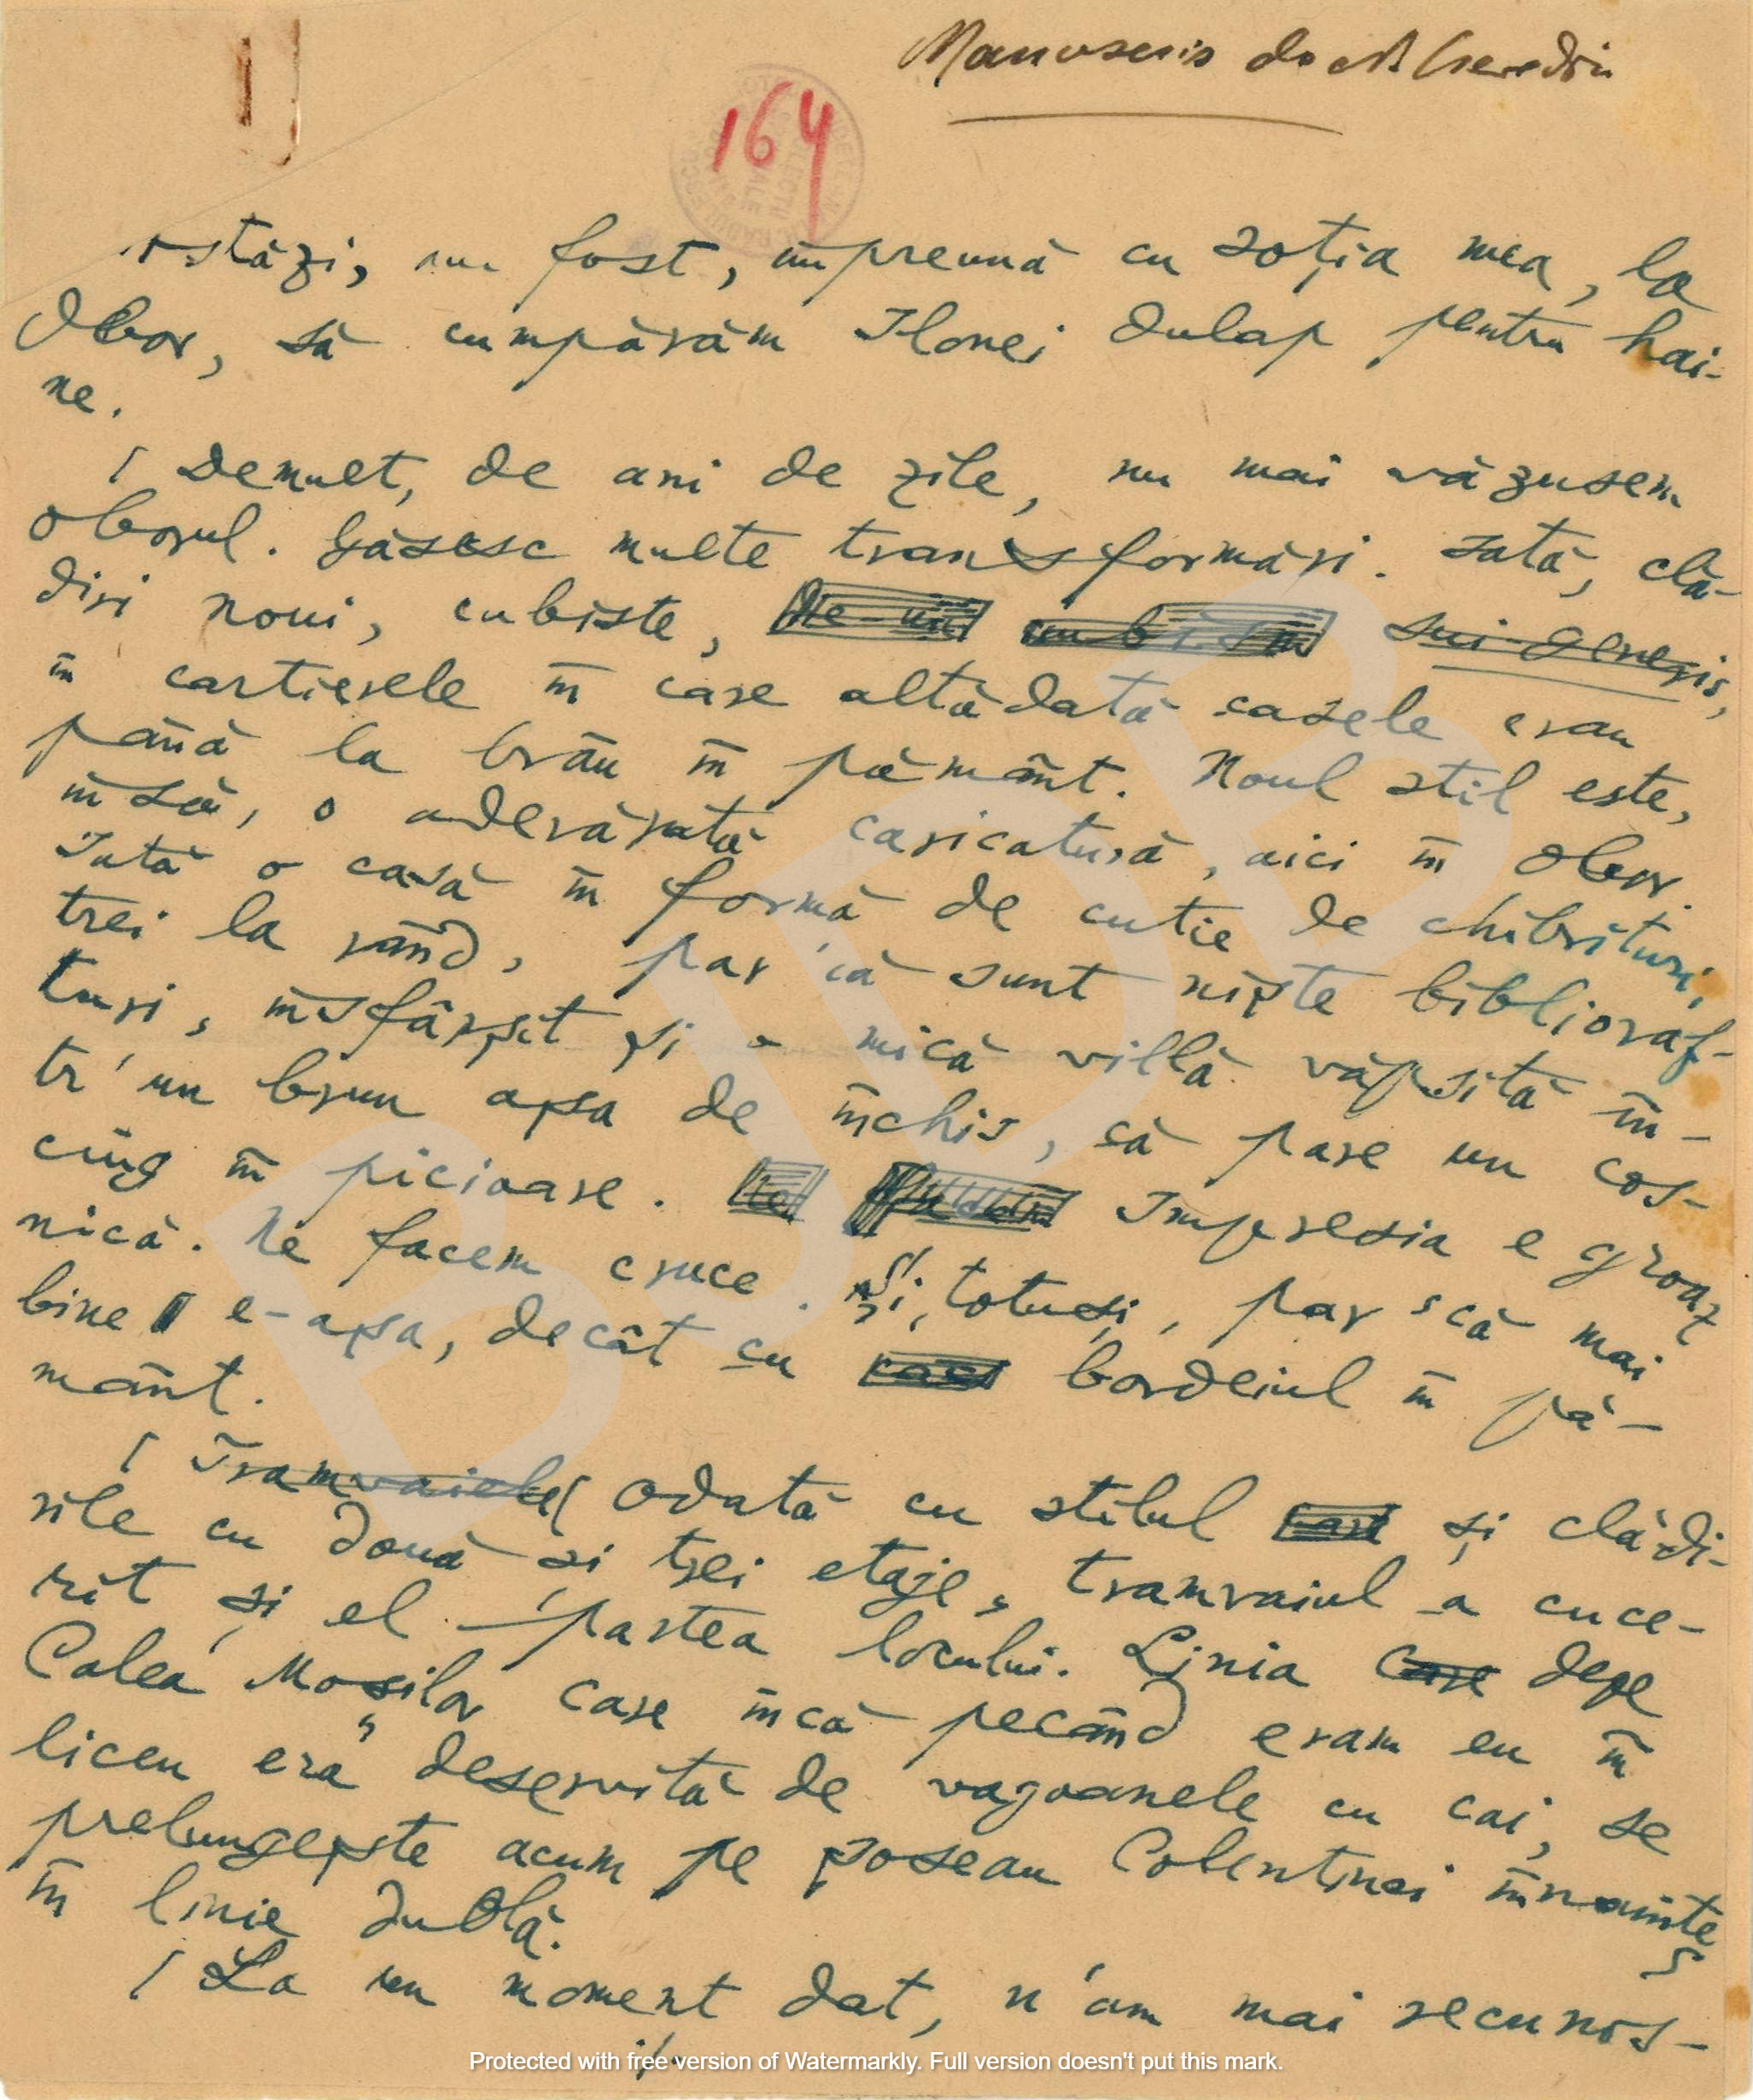 Manuscris de
164
Astăzi, am fost, împreună cu soția mea, la
Obor, să cumpărăm Ilonei dulap pentru hai-
ne.
Demult, de ani de zile, nu mai văzusem
oborul. Găsesc multe transformări. Iată, clă-
diri noui, cubiste, sui-generis,
în cartierele în care altădată casele erau
până la brâu în pământ. Noul stil este,
însă, o adevărată caricatură, aici în Obor.
Iată o casă în formă de cutie de chibrituri,
trei la rând, par'că sunt niște biblioraf-
turi, însfârșit și o mică villă văpsită în-
tr'un brun așa de închis, că pare un coș-
ciug în picioare. Impresia e groaz
nică. Ne facem cruce. Și, totuși, par'că mai
bine e-așa, decât cu bordeiul în pă-
mânt.
Tramvaiele Odată cu stilul și clădi-
rile cu două și trei etaje, tramvaiul a cuce-
rit și el partea locului. Linia care depe
Calea Moșilor care încă pecând eram eu în
liceu era deservită de vagoanele cu cai, se
prelungește acum pe șoseau Colentinei înnainte
în linie dublă.
La un moment dat, n'am mai recunos-
./.
BJDB
Protected with free version of Watermarkly. Full version doesn't put this mark.